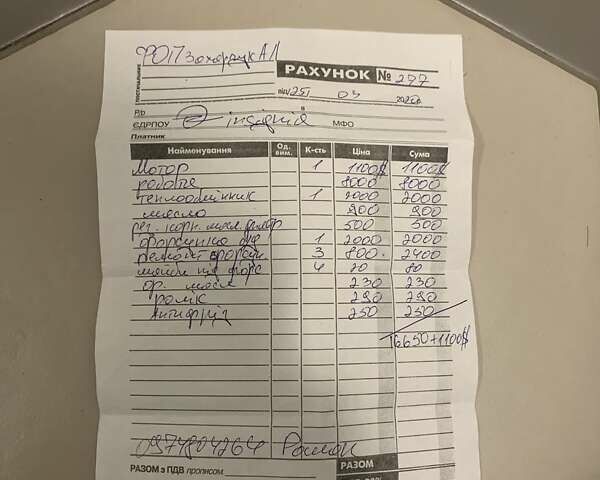 ФОП Захарчук АЛ
ПОСТАЧАЛЬНИК
РАХУНОК № 277
від 25 03
Р/р в
ЄДРПОУ інсігнія МФО
Платник
Найменування Од. вим. К-сть Ціна Сума
Мотор 1 1100$ 1100$
робота 8000 8000
теплообмінник 1 2000 2000
масло 900 900
500 500
форсунка б/у 1 2000 2000
ремонт форсун 3 800. 2400
шайби під форс 4 20 80
ф. масл 230 230
290 290
Антифріз 250 250
16650+1100$
0974804264 Роман
РАЗОМ з ПДВ прописом
РАЗОМ